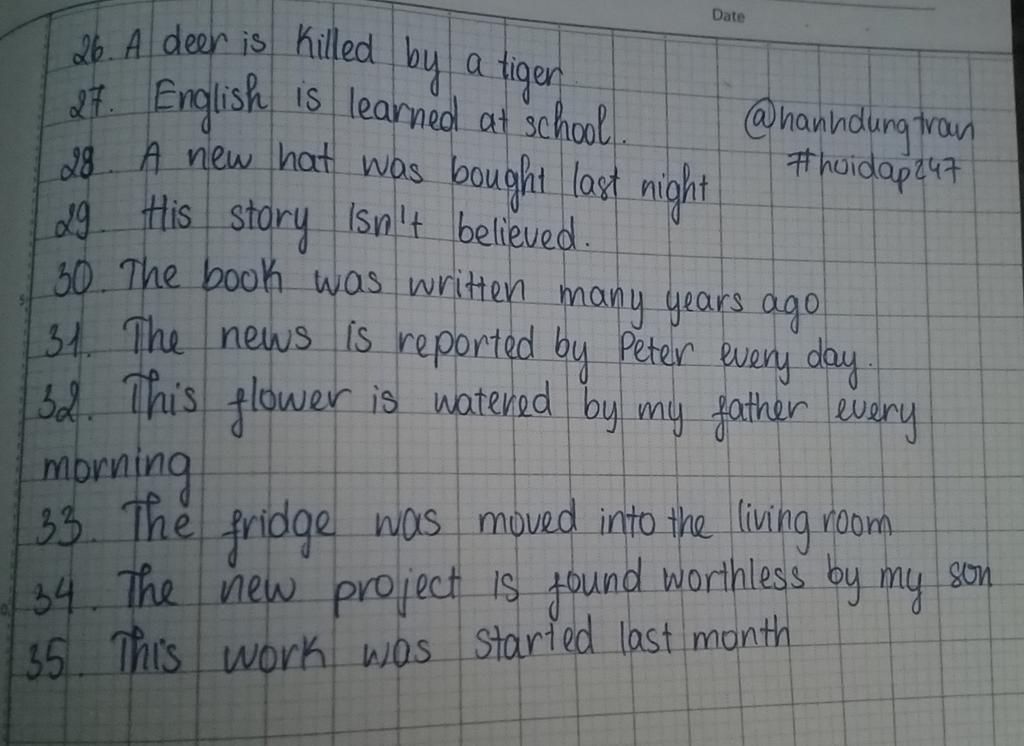 Date
26. A deer is killed by a tiger
27. English is learned at school.
@hanhdungtran
28. A new hat was bought last night
#hoidap247
29. His story isn't believed.
30. The book was written many years ago
31. The news is reported by Peter every day.
32. This flower is watered by my father every
morning
33. The fridge was moved into the living room
34. The new project is found worthless by my son
35. This work was started last month